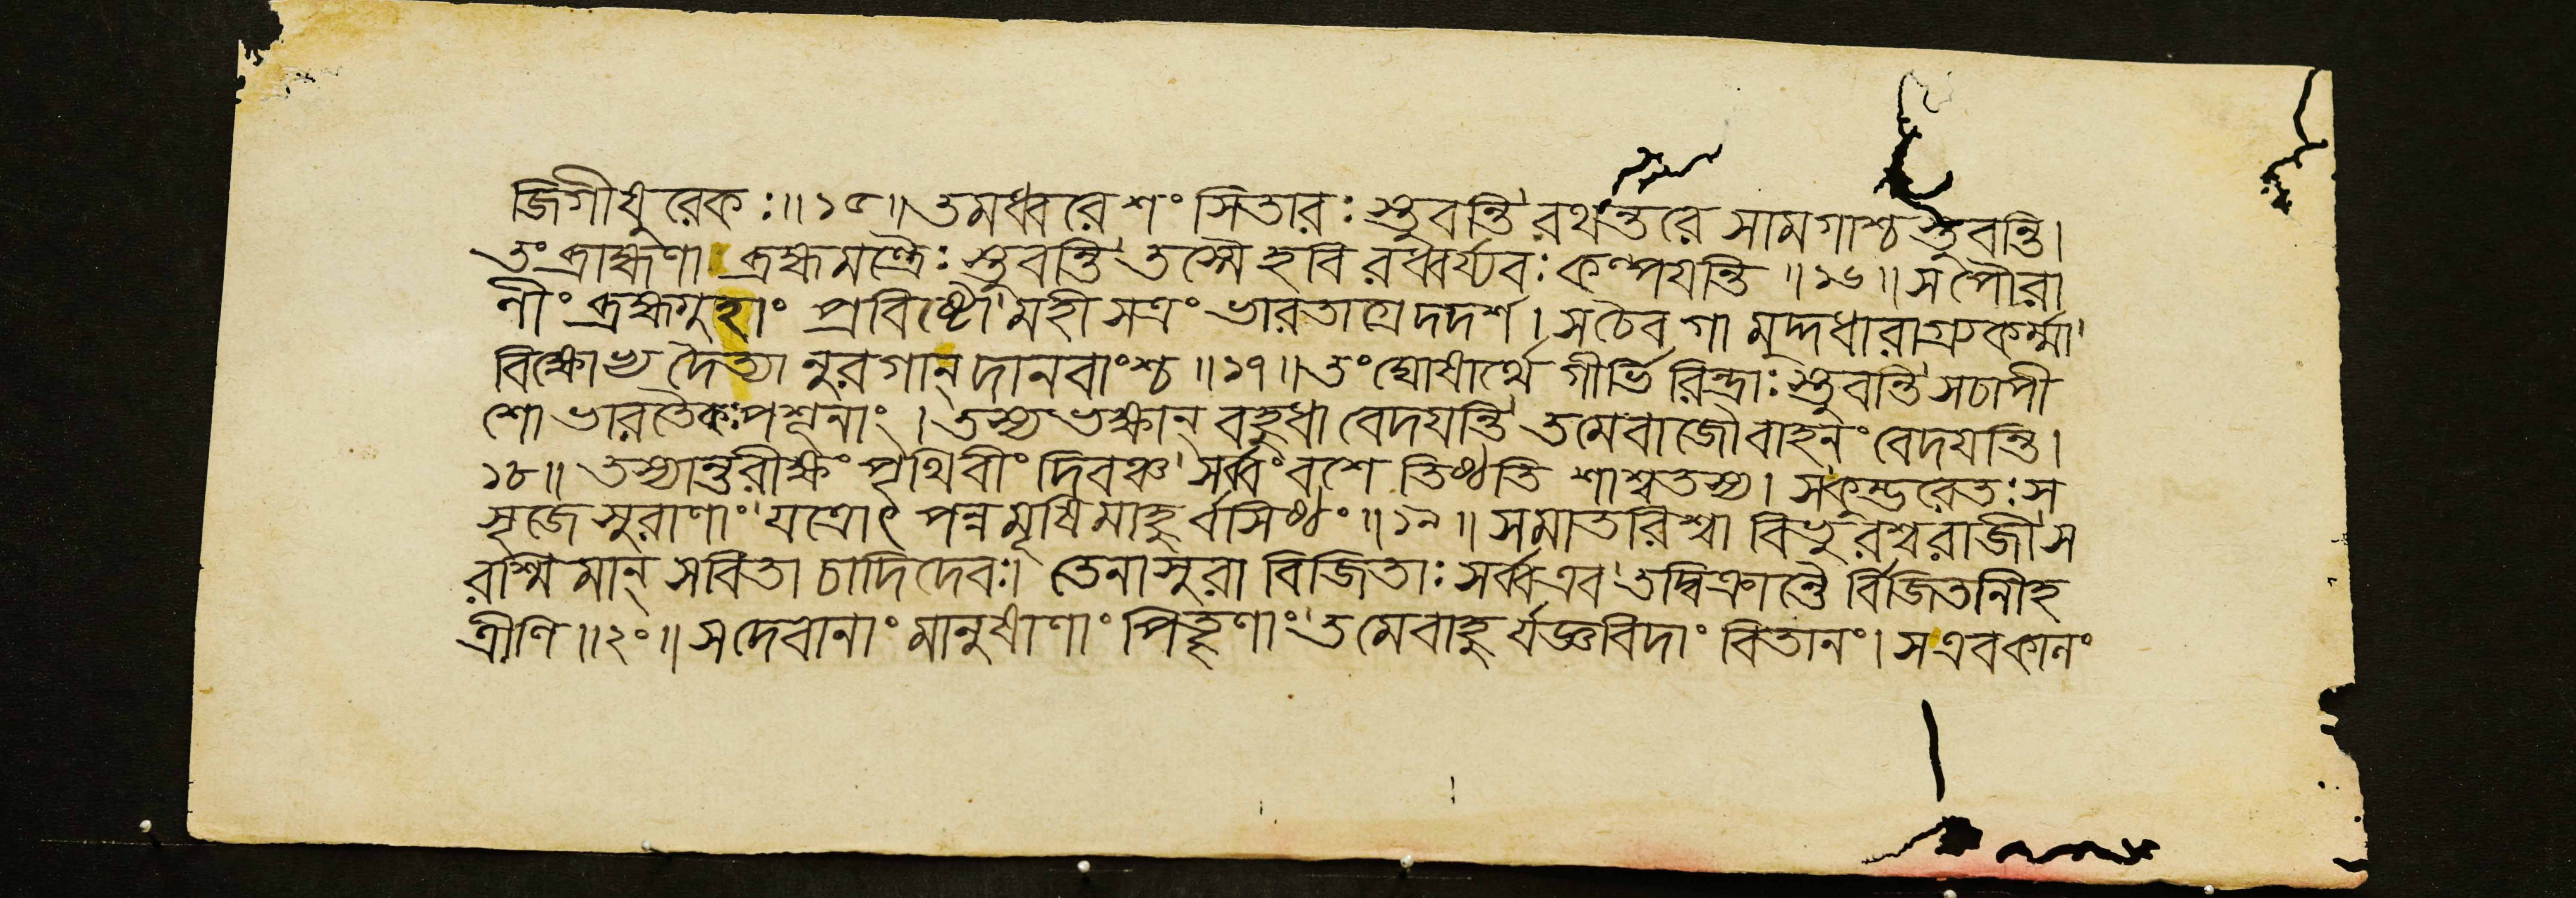 জিগীষুরেকঃ॥১৫॥তমধ্বরেশংসিতারঃস্তুবন্তি'রথন্তরেসামগাশ্চস্তুবন্তি।
তংব্রাহ্মণা ব্রহ্মমন্ত্রৈঃস্তুবন্তি'তস্মৈহবিরধ্বর্য্যবঃকল্পযন্তি॥১৬॥সপৌরা
নীংব্রহ্মগুহাং প্রবিষ্টো'মহীসত্রংভারতাগ্রেদদর্শ।সচৈবগামুদ্দধারাগ্রকর্ম্মা'
বিক্ষোভ্যদৈত্যানুরগান্দানবাংশ্চ॥১৭॥তংঘোষার্থেগীর্ভিরিন্দ্রাঃস্তুবন্তি'সচাপী
শোভারতৈকঃপশূনাং।তস্যভক্ষান্বহুধাবেদযন্তি'তমেবাজৌবাহনংবেদযন্তি।
১৮॥তস্যান্তরীক্ষংপৃথিবীংদিবঞ্চ'সর্ব্বংবশেতিষ্ঠতিশাশ্বতস্য।সকুম্ভরেতঃস
সৃজেসুরাণাং'যত্রোৎপন্নমৃষিমাহুর্ব্বসিষ্ঠং॥১৯॥সমাতরিশ্বাবিভুরশ্বরাজী'স
রশ্মিমান্সবিতাচাদিদেবঃ।তেনাসুরাবিজিতাঃসর্ব্বএব'তদ্বিক্রান্তৈর্ব্বিজিতনিীহ
ত্রীণি॥২০॥সদেবানাংমানুষাণাংপিতৄণাং'তমেবাহুর্যজ্ঞবিদাংবিতানং।সএবকানং